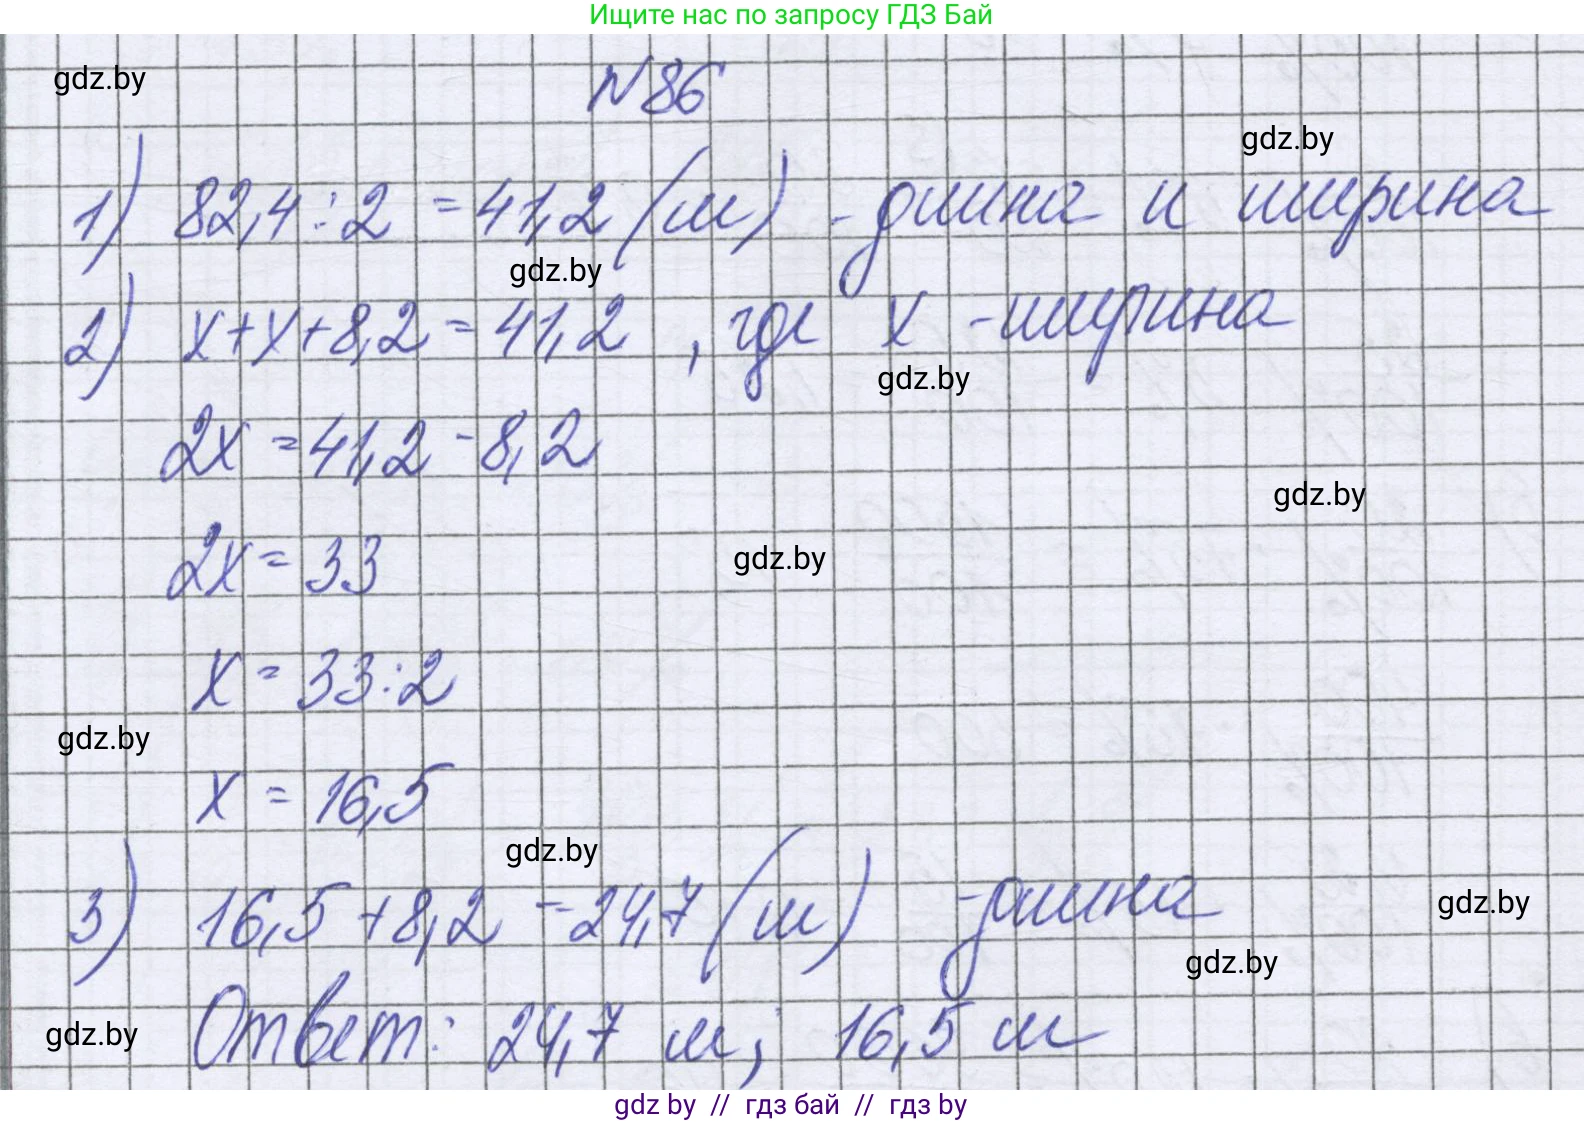 Ищите нас по запросу ГДЗ Бай
gdz.by
N86
gdz.by
1) 82,4 : 2 = 41,2 (м) - длина и ширина
gdz.by
2) x+x+8,2 = 41,2 , где x - ширина
gdz.by
2x = 41,2 - 8,2
gdz.by
2x = 33
gdz.by
x = 33:2
gdz.by
x = 16,5
gdz.by
3) 16,5 + 8,2 = 24,7 (м) - длина
gdz.by
gdz.by
Ответ: 24,7 м; 16,5 м
gdz.by
gdz by // гдз бай // гдз by